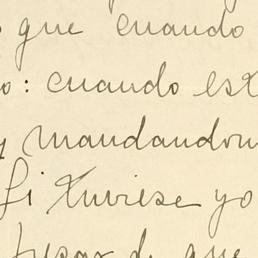 que cuando
o: cuando est
y mandandom
Si tuviese yo
pesar de que